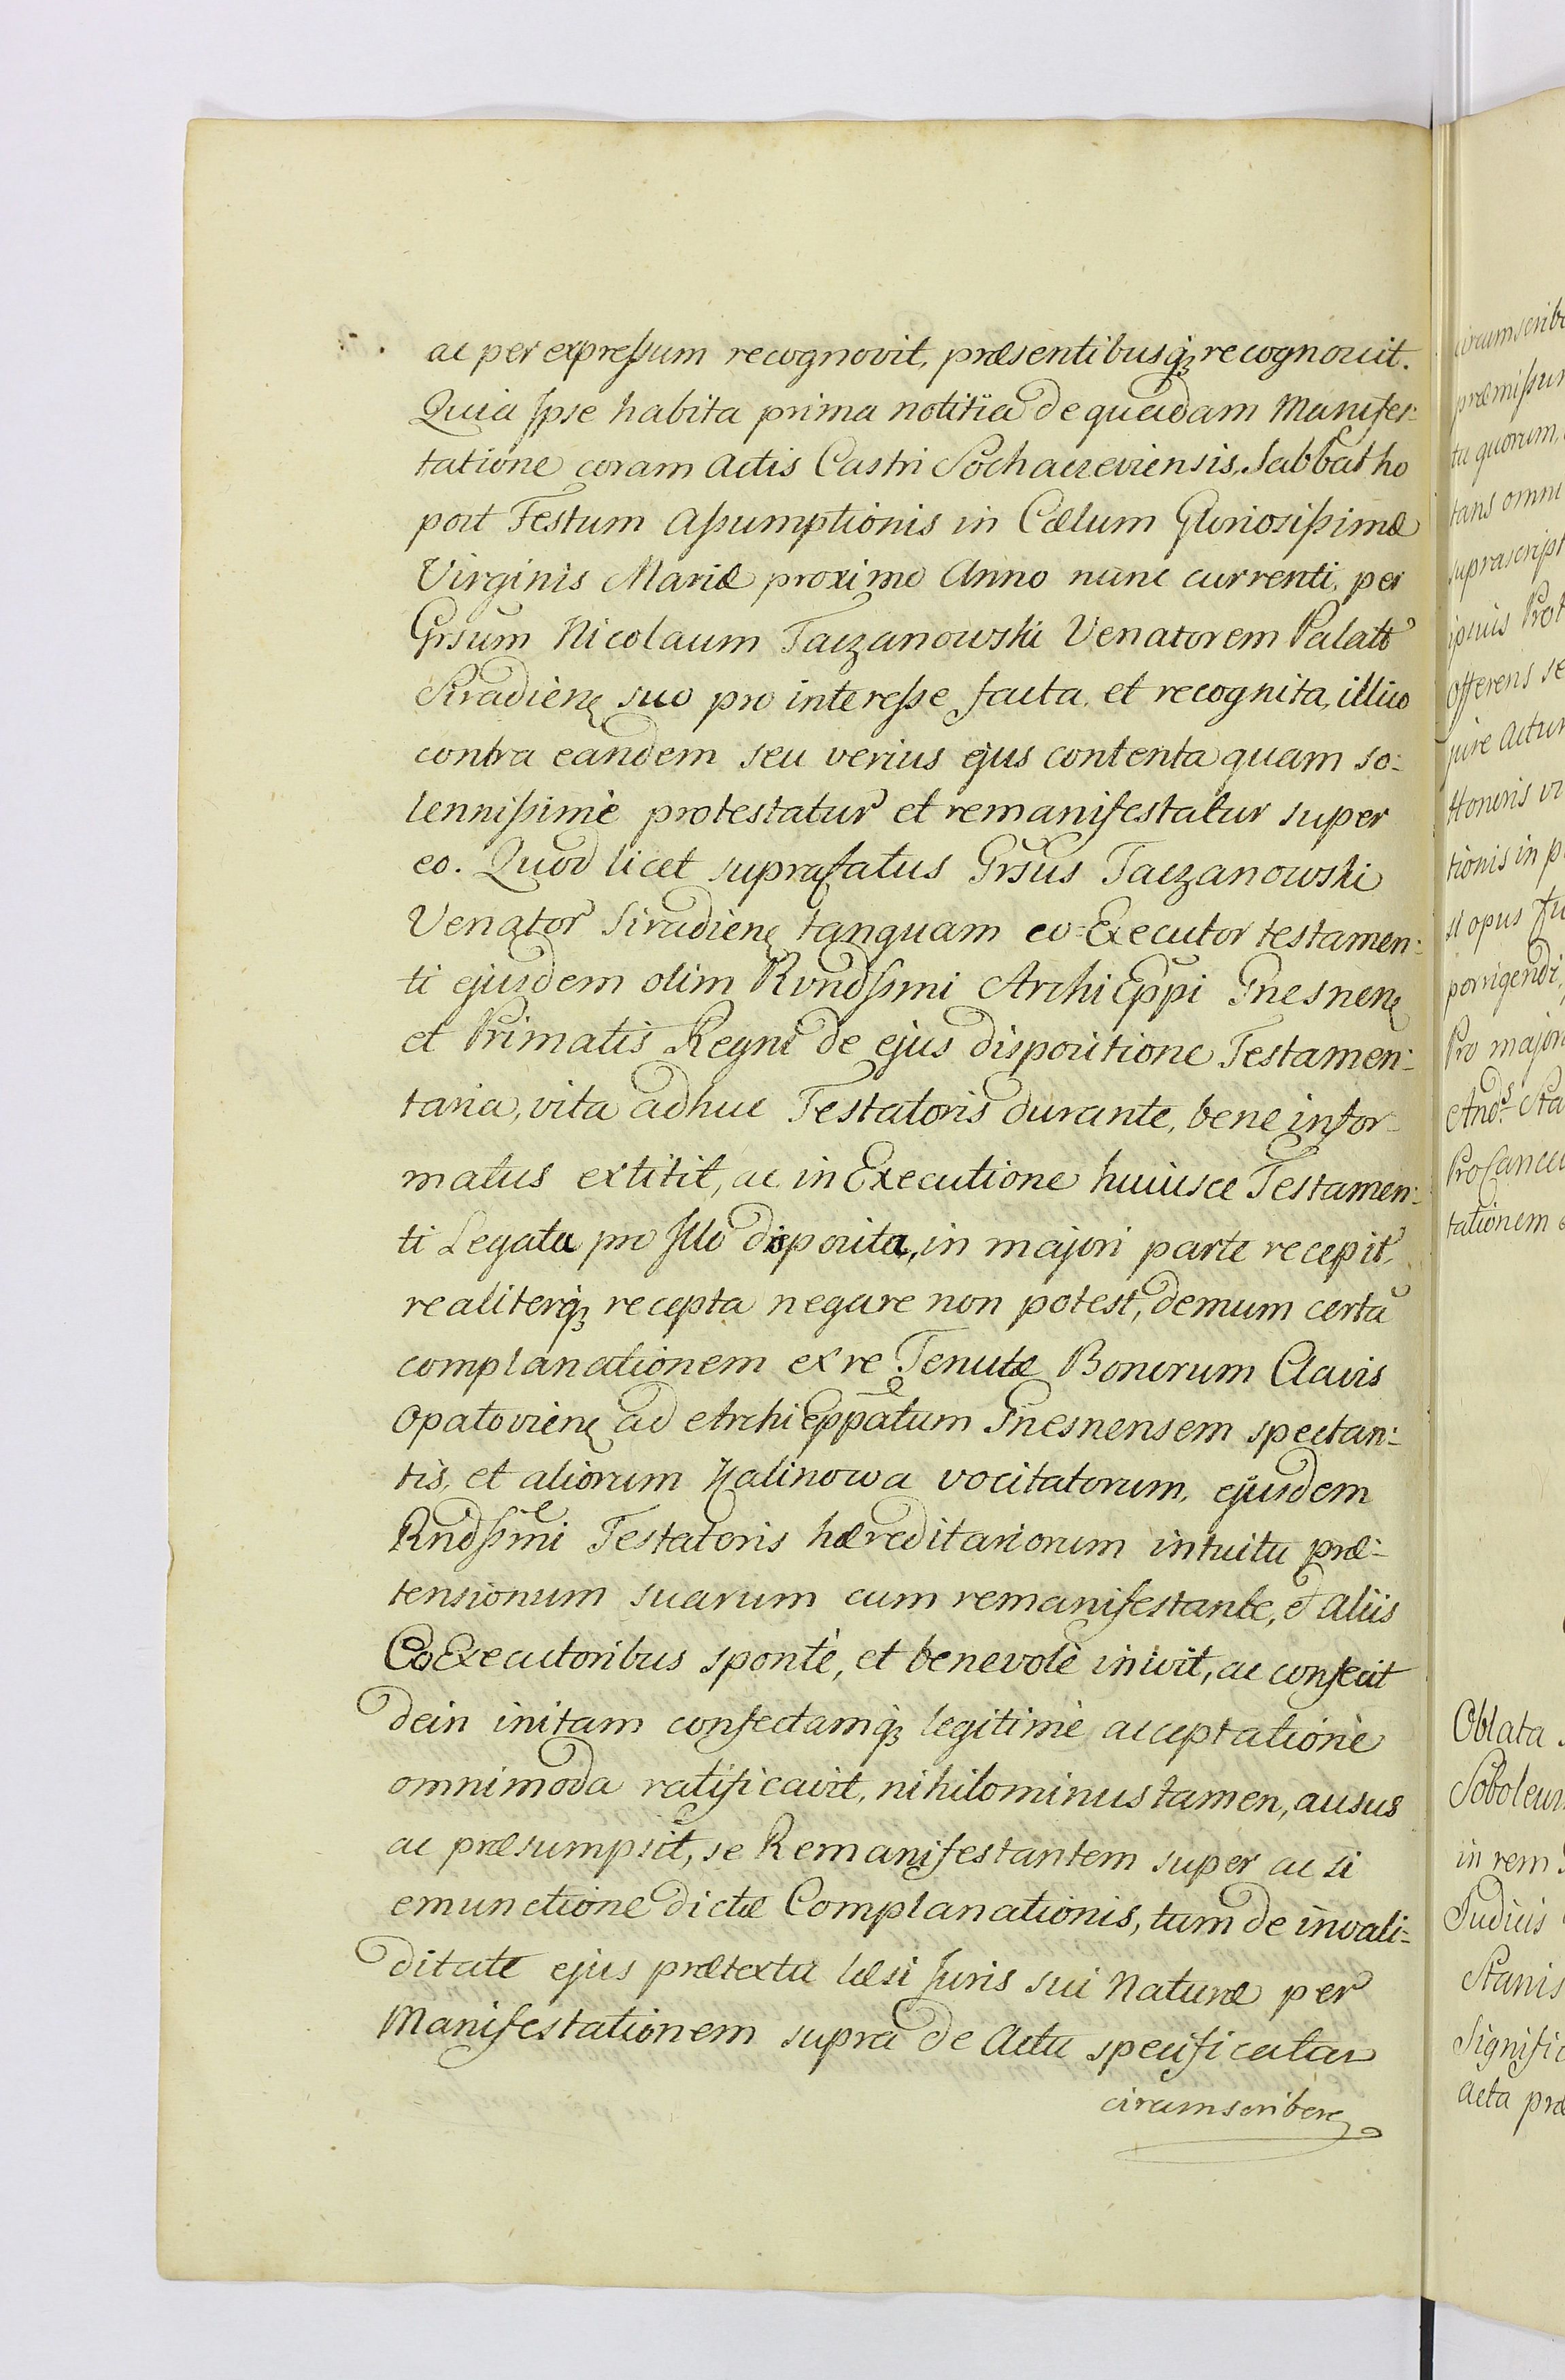 ac per expressum recognovit, præsentibusq; recognouit.
Quia Ipse habita prima notitia de quadam Manifes:
tatione coram Actis Castri Sochaczeviensis, Sabbatho
post Festum Assumptionis in Cælum Gloriosissimæ
Virginis Mariæ proximo Anno nunc currenti, per
Grsum Nicolaum Taczanowski Venatorem Palatt
Siradiens suo pro interesse facta, et recognita, illico
contra eandem seu verius ejus contenta quam so:
lennissimè protestatur et remanifestatur super
eo. Quod licet suprafatus Grsus Taczanowski
Venator Siradiens tanquam co=Executor testamen:
ti ejusdem olim Rvndssmi ArchiEppi Gnesnens
et Primatis Regni de ejus dispositione Testamen:
taria, vita adhuc Testatoris durante, bene infor:
matus extitit, ac in Executione huiusce Testamen:
ti Legata pro Illo disposita, in majori parte recepit,
realiterq; recepta negare non potest, demum certã
complanationem ex re Tenutæ Bonorum Clavis
Opatoviens ad ArchiEppatum Gnesnensem spectan:
tis, et aliorum Kalinowa vocitatorum, ejusdem
Rndssmi Testatoris hæreditariorum intuitu præ:
tensionum suarum cum remanifestante, et aliis
CoExecutoribus spontè, et benevolè inivit, ac confecit
dein initam confectamq; legitimè acceptatione
omnimoda ratificavit, nihilominus tamen, ausus
ac præsumpsit, se Remanifestantem super ac si
emunctione dictæ Complanationis, tum de invali:
ditate ejus prætextu læsi Juris sui Naturæ per
Manifestationem supra de Actu specificatam
circumscribere
circumscribe
præmissum
ta quorum,
tans omni
suprascript
ipsius Prot
Offerens se
jure actur
Honoris
tionis in p
si opus fu
porrigendi,
Pro majori
Andr Sta
ProCancel
tationem
Oblata
Sobolew
in rem
Judiciis
Stanis
Signific
Acta præ